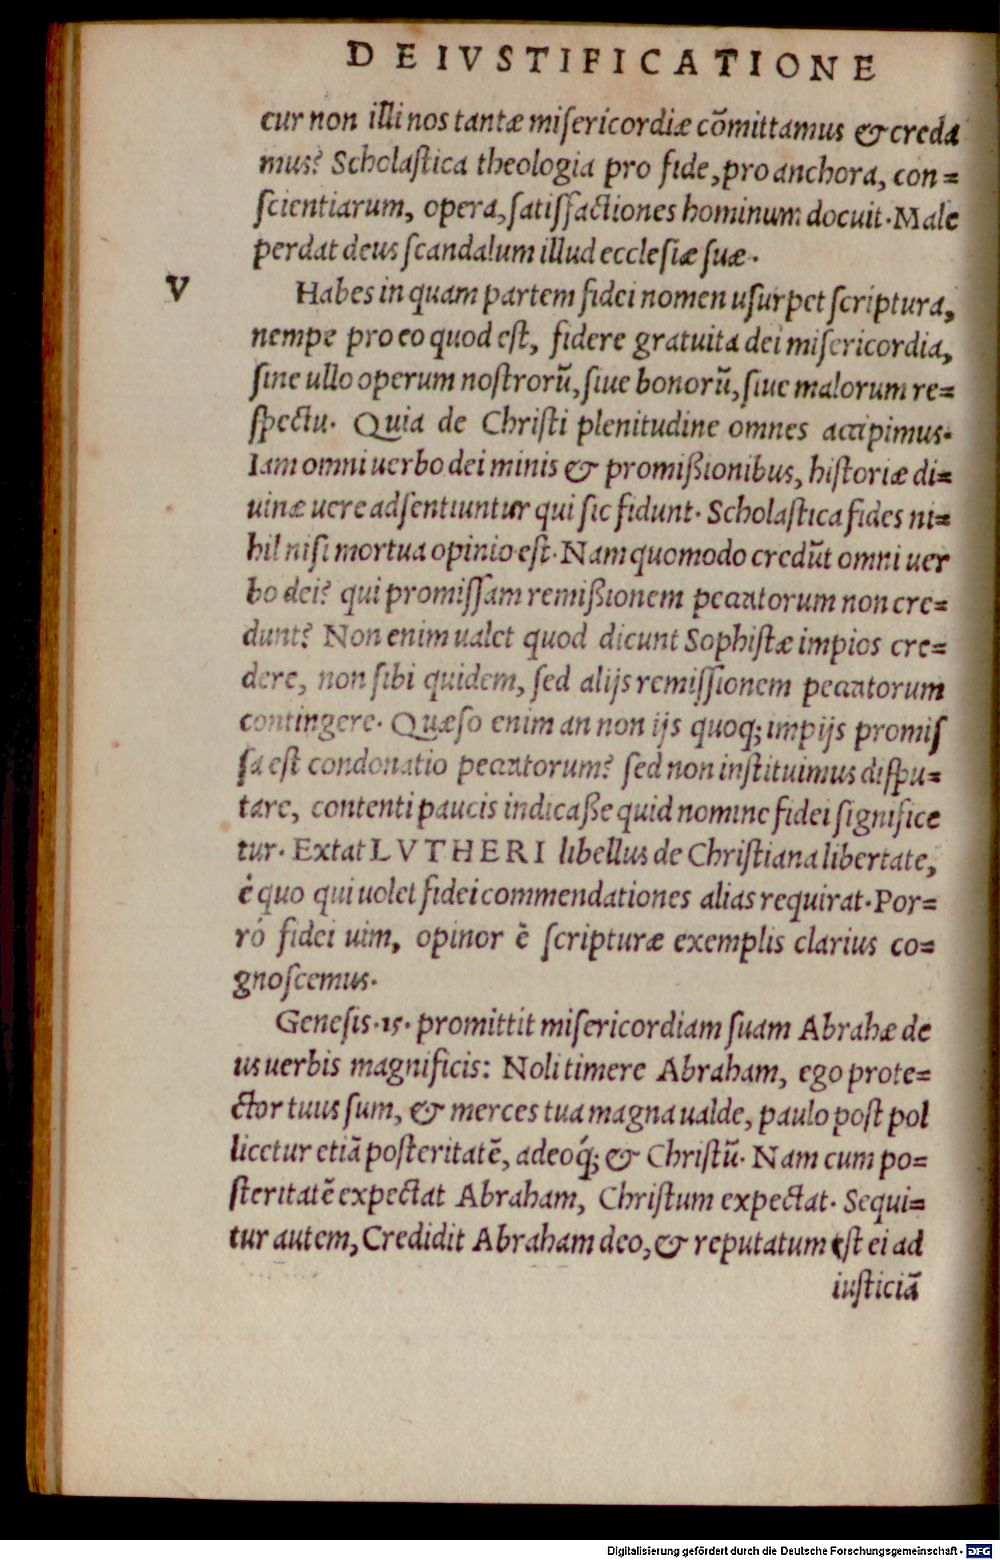 DE IVSTIFICATIONE
cur non illi nos tantæ miſericordiæ cõmittamus & creda
mus? Scholaſtica theologia pro fide, pro anchora, con=
ſcientiarum, opera, ſatiſfactiones hominum docuit. Male
perdat deus ſcandalum illud eccleſiæ ſuæ.
V
Habes in quam partem fidei nomen uſurpet ſcriptura,
nempe pro eo quod eſt, fidere gratuita dei miſericordia,
ſine ullo operum noſtrorũ, ſiue bonorũ, ſiue malorum re=
ſpectu. Quia de Chriſti plenitudine omnes accipimus.
Iam omni uerbo dei minis & promißionibus, hiſtoriæ di=
uinæ uere adſentiuntur qui ſic fidunt. Scholaſtica fides ni=
hil niſi mortua opinio eſt. Nam quomodo credũt omni uer
bo dei? qui promiſſam remißionem peccatorum non cre=
dunt? Non enim ualet quod dicunt Sophiſtæ impios cre=
dere, non ſibi quidem, ſed alijs remiſſionem peccatorum
contingere. Quæſo enim an non ijs quoq; impijs promiſ
ſa eſt condonatio peccatorum? ſed non inſtituimus diſpu=
tare, contenti paucis indicaße quid nomine fidei ſignifice
tur. Extat LVTHERI libellus de Chriſtiana libertate,
è quo qui uolet fidei commendationes alias requirat. Por=
rò fidei uim, opinor è ſcripturæ exemplis clarius co=
gnoſcemus.
Geneſis.15. promittit miſericordiam ſuam Abrahæ de
us uerbis magnificis: Noli timere Abraham, ego prote=
ctor tuus ſum, & merces tua magna ualde, paulo poſt pol
licetur etiã poſteritatẽ, adeoq́; & Chriſtũ. Nam cum po=
ſteritatẽ expectat Abraham, Chriſtum expectat. Sequi=
tur autem, Credidit Abraham deo, & reputatum eſt ei ad
iuſticiã
Digitalisierung gefördert durch die Deutsche Forschungsgemeinschaft - DFG